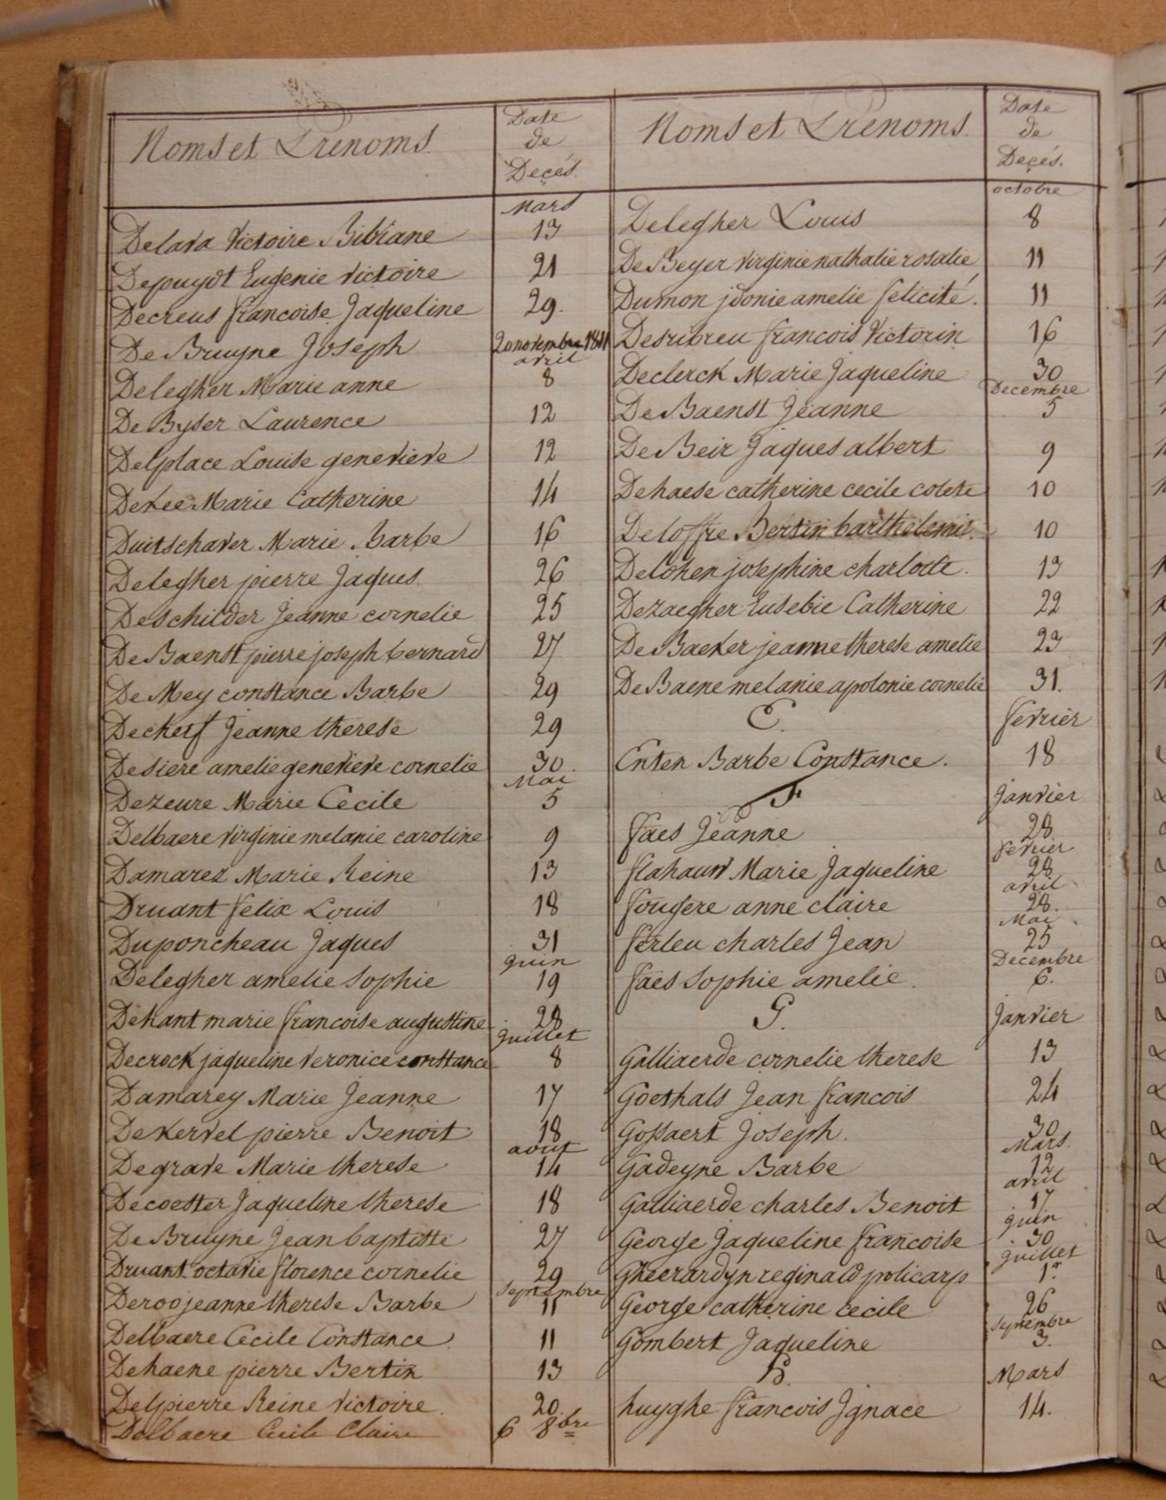 Noms et Prenoms
Date
de
Deçés.
Mars
Delava Victoire Bibiane 13
Depuydt Eugenie Victoire 21
Decreus francoise Jaqueline 29.
De Bruyne Joseph 20 novembre 1811
avril
Delegher Marie anne 8
De Byser Laurence 12
Delplace Louise genevieve 12
Dekee Marie Catherine 14
Duitschaver Marie Barbe 16
Delegher pierre Jaques 26
Deschilder Jeanne cornelie 25
De Baenst pierre joseph bernard 27
De Mey constance Barbe 29
Decherf Jeanne therese 29
Desiere amelie genevieve cornelie 30
Mai
Dezeure Marie Cecile 5
Delbaere virginie melanie caroline 9
Damarez Marie Reine 13
Druant felix Louis 18
Duponcheau Jaques 31
Juin
Delegher amelie sophie 19
Dehant marie francoise augustine 28
Juillet
Decrock jaqueline veronice constance 8
Damarey Marie Jeanne 17
Dekervel pierre Benoit 18
aout
Degrave Marie therese 14
Decoester Jaqueline therese 18
De Bruyne Jean baptiste 27
Druant octavie florence cornelie 29
Septembre
Deroo jeanne therese Barbe 11
Delbaere Cecile Constance 11
Dehaene pierre Bertin 13
Delpierre Reine Victoire 20
Delbaere Cecile Claire 6 8bre
Noms et Prenoms
Date
de
Deçés.
octobre
Delegher Louis 8
De Beyer virginie nathalie rosalie 11
Dumon jdonie amelie felicité. 11
francois Victorin 16
Declerck Marie Jaqueline 30
Decembre
De Baenst Jeanne 5
De Beir Jaques albert 9
Dehaese catherine cecile colete 10
Deloffre Bertin barthelemie 10
Delohen josephine charlotte. 13
Dezaegher Eusebie Catherine 22
De Backer jeanne therese amelie 23
De Baene melanie apolonie cornelie 31.
E. fevrier
Enten Barbe Constance. 18
F janvier
faes Jeanne 28
fevrier
flahaux Marie Jaqueline 28
avril
fougere anne claire 28.
Mai
ferleu charles Jean 25
Decembre
faes sophie amelie. 6.
G. janvier
Galliaerde cornelie therese 13
Goethals Jean francois 24
Gossaert Joseph. 30
Mars
Gadeyne Barbe 12
avril
Galliaerde charles Benoit 17
juin
George Jaqueline francoise 30
juillet
Gheerardyn reginald policarp 1er
George catherine cecile 26
Septembre
Gombert Jaqueline 3.
H. Mars
huyghe francois Jgnace 14.